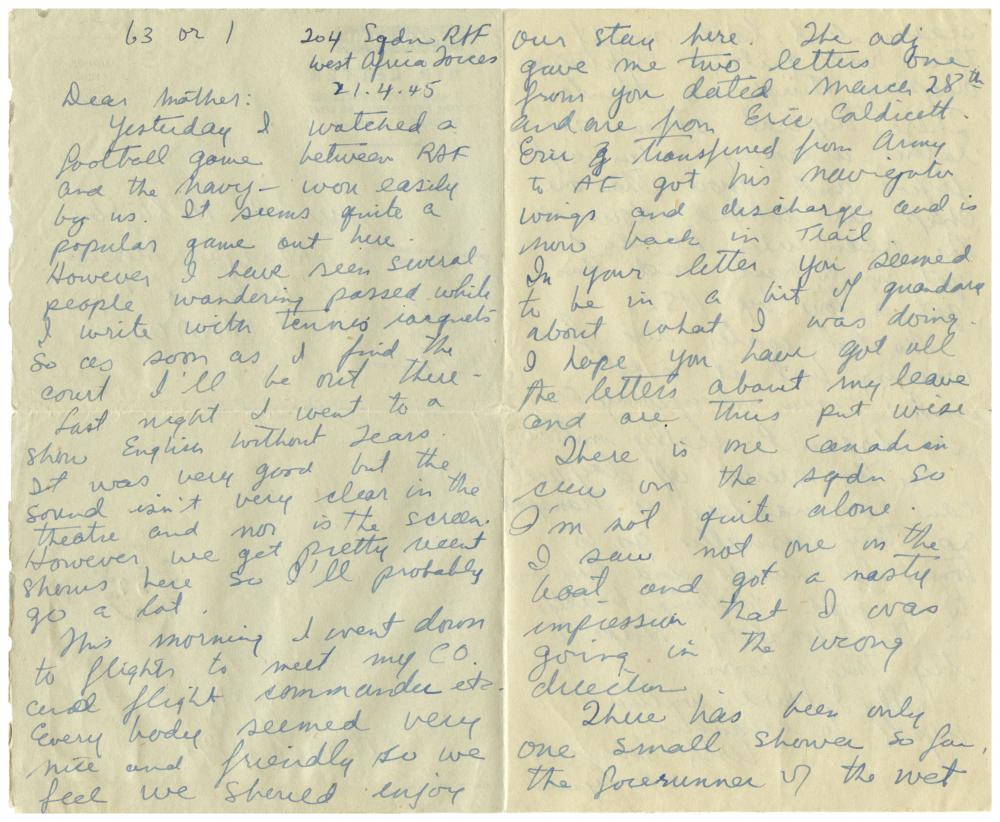 63 or 1
204 Sqdn RAF
West Africa Forces
21.4.45
Dear Mother:
Yesterday I watched a
football game between RAF
and the Navy – won easily
by us. It seems quite a
popular game out here.
However I have seen several
people wandering passed while
I write with tennis racquets
So as soon as I find the
court I'll be out there –
Last night I went to a
show English Without Tears.
It was very good but the
sound isn't very clear in the
theatre and nor is the screen.
However we get pretty recent
shows here so I'll probably
go a lot.
This morning I went down
to flights to meet my CO.
and flight commander etc–
Every body seemed very
nice and friendly so we
feel we should enjoy
our stay here. The adj
gave me two letters one
from you dated March 28th
and one from Eric Caldicott.
Eric transfured from Army
to AF got his navigator
wings and discharge and is
now back in Trail
In your letter you seemed
to be in a bit of quandary
about what I was doing.
I hope you have got all
the letters about my leave
and are thus put wise
There is one Canadian
crew on the sqdn so
I'm not quite alone.
I saw not one on the
boat and got a nasty
impression that I was
going in the wrong
direction
There has been only
one small shower so far,
the forerunner of the wet